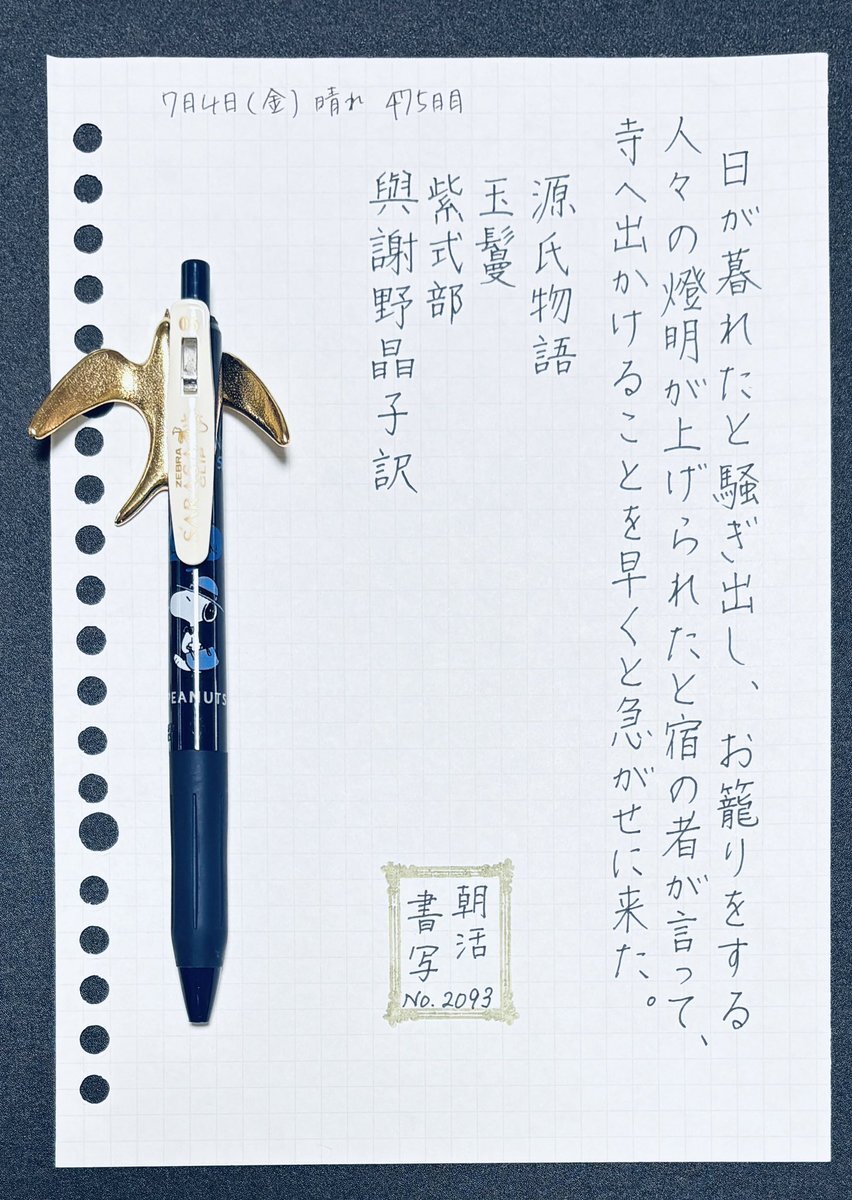 7月4日(金) 晴れ 475日目
日が暮れたと騒ぎ出し、お籠りをする
人々の燈明が上げられたと宿の者が言って、
寺へ出かけることを早くと急がせに来た。
源氏物語
玉鬘
紫式部
與謝野晶子訳
朝活
書写
No.2093
ZEBRA
SARASA
CLIP
PEANUTS